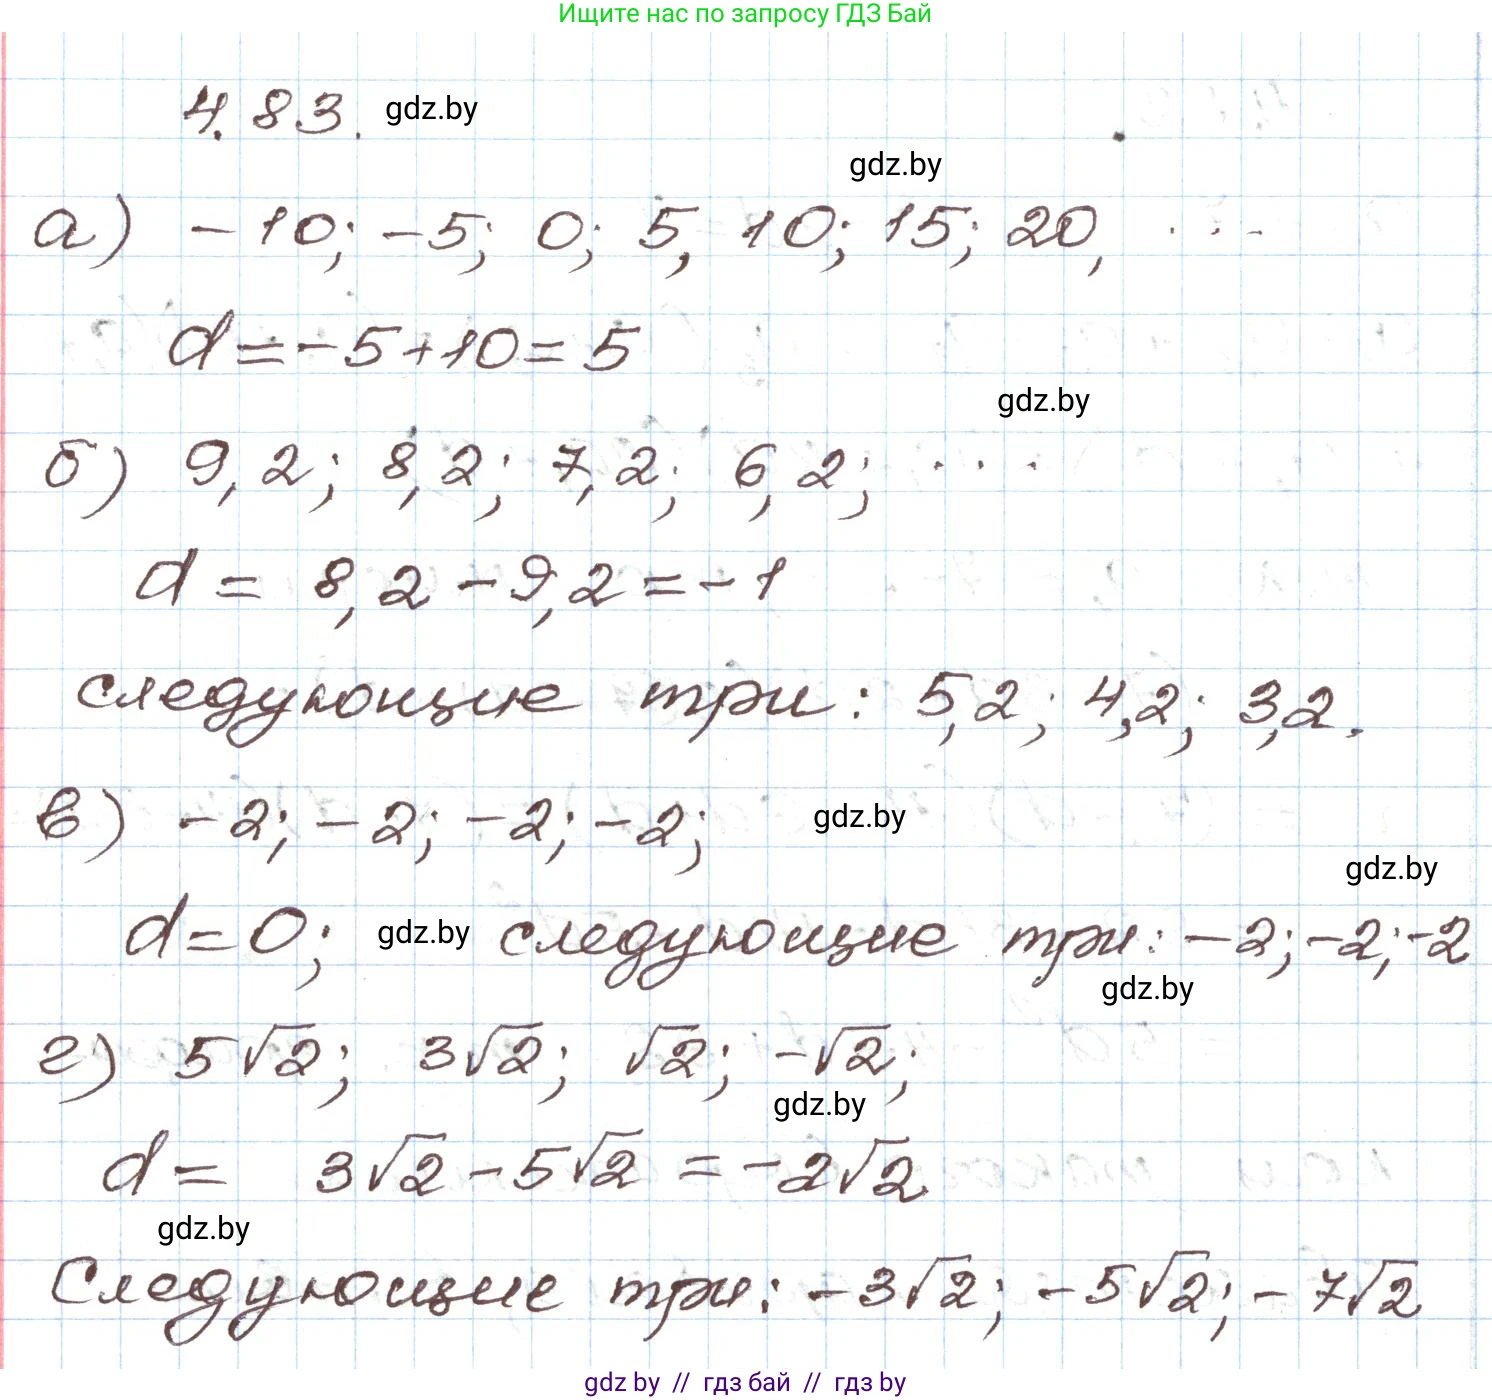 Ищите нас по запросу ГДЗ Бай
4.83. gdz.by
gdz.by
а) -10; -5; 0; 5, 10; 15; 20, ...
d = -5 + 10 = 5
gdz.by
б) 9,2; 8,2; 7,2; 6,2; ...
d = 8,2 - 9,2 = -1
следующие три: 5,2; 4,2; 3,2.
в) -2; -2; -2; -2; gdz.by
gdz.by
d = 0; gdz.by следующие три: -2; -2; -2
gdz.by
г) 5√2; 3√2; √2; -√2;
gdz.by
d = 3√2 - 5√2 = -2√2
gdz.by
Следующие три: -3√2; -5√2; -7√2
gdz.by // гдз бай // гдз by